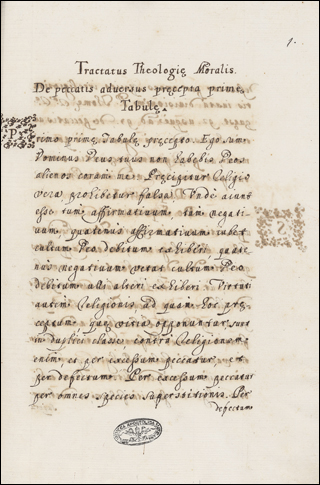 1.
Tractatus Theologię Moralis.
De peccatis adversus pręcepta primę
Tabulę.
Primo primę Tabulę pręcepto. Ego sum
Dominus Deus tuus non habebis Deos
alienos coram me. Pręcipitur Religio
vera prohibetur falsa. Unde aiunt
esse tum affirmativum tum negati
vum, quatenus affirmativum iubet
cultum Deo debitum exhiberi quate
nus negativum vetat cultum Deo
debitum ulli alteri exhiberi. Virtuti
autem Religionis ad quam hoc pręc
ceptum que vitia opponuntur, sunt
in duplici classe contra Religionem
enim, et per excessum peccatur, et
per defectum. Per excessum peccatur
per omnes species superstitionis. Per
defectum